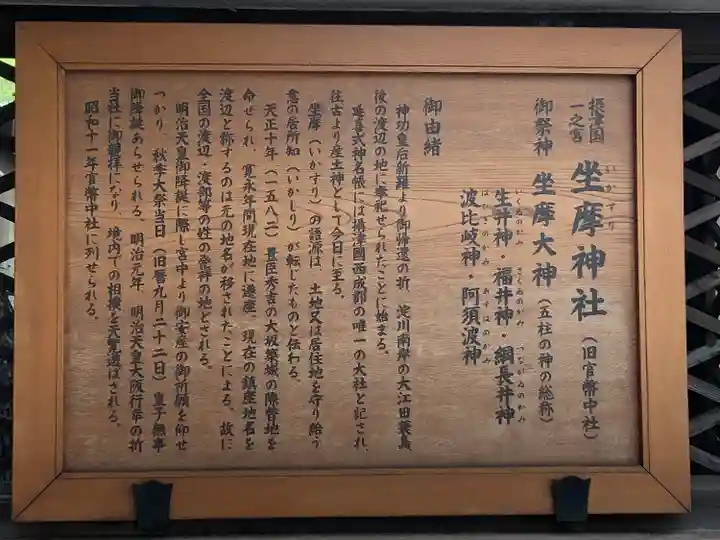 摂津国
一之宮
坐摩神社（旧官幣中社）
いかすり
御祭神 坐摩大神（五柱の神の総称）
いくゐのかみ さくゐのかみ つながゐのかみ
生井神・福井神・綱長井神
はひきのかみ あすはのかみ
波比岐神・阿須波神
御由緒
神功皇后新羅より御帰還の折、淀川南岸の大江田蓑島
後の渡辺の地に奉祀せられたことに始まる。
延喜式神名帳には摂津國西成郡の唯一の大社と記され、
往古より産土神として今日に至る。
坐摩（いかすり）の語源は、土地又は居住地を守り給う
意の居所知（いかしり）が転じたものと伝わる。
天正十年（一五八二）豊臣秀吉の大坂築城の際替地を
命せられ、寛永年間現在地に遷座、現在の鎮座地名を
渡辺と称するのは元の地名が移されたことによる。故に
全国の渡辺・渡部等の姓の発祥の地とされる。
明治天皇御降誕に際し宮中より御安産の御祈願を仰せ
つかり、秋季大祭当日（旧暦九月二十二日）皇子無事
御降誕あらせられる。明治元年、明治天皇大阪行幸の折
当社に御親拝になり、境内での相撲を天覧遊ばされる。
昭和十一年官幣中社に列せられる。